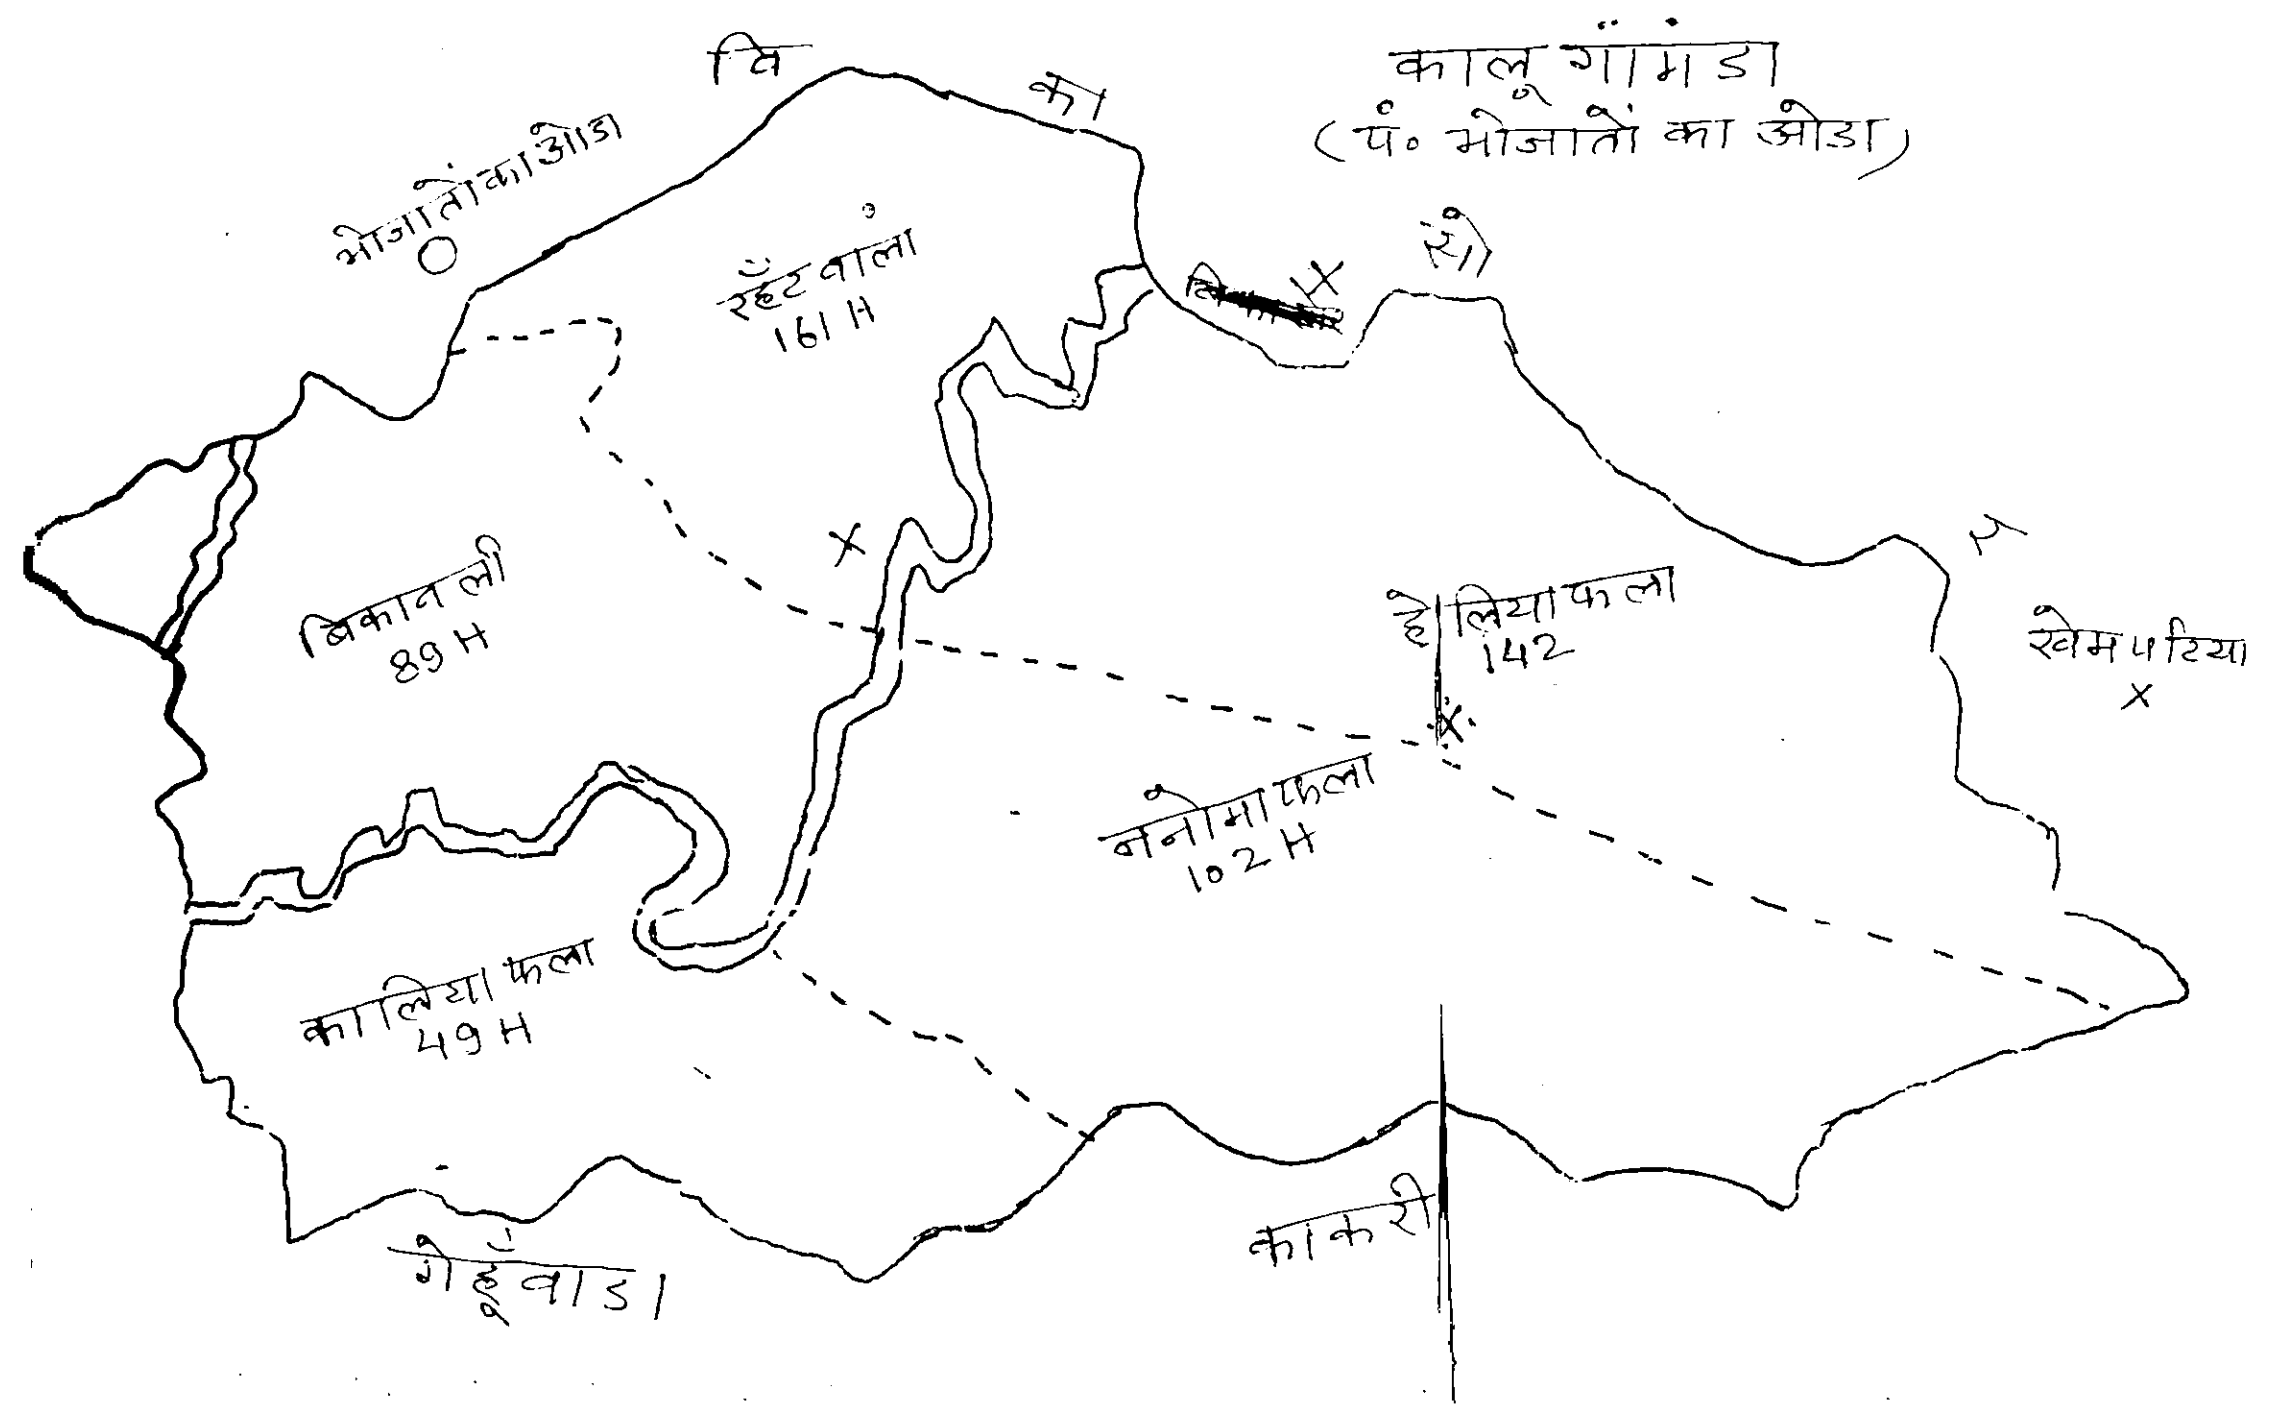 कालू गांमंडा
(पं. भोजातों का ओडा)
वि
का
सो
र
भोजातों का ओडा
रहँटवाला
161 H
बिकानली
89 H
होलियाफला
142
खेमपटिया
ननोमाफला
102 H
कालियाफला
49 H
गेहूँवाडा
काकरी